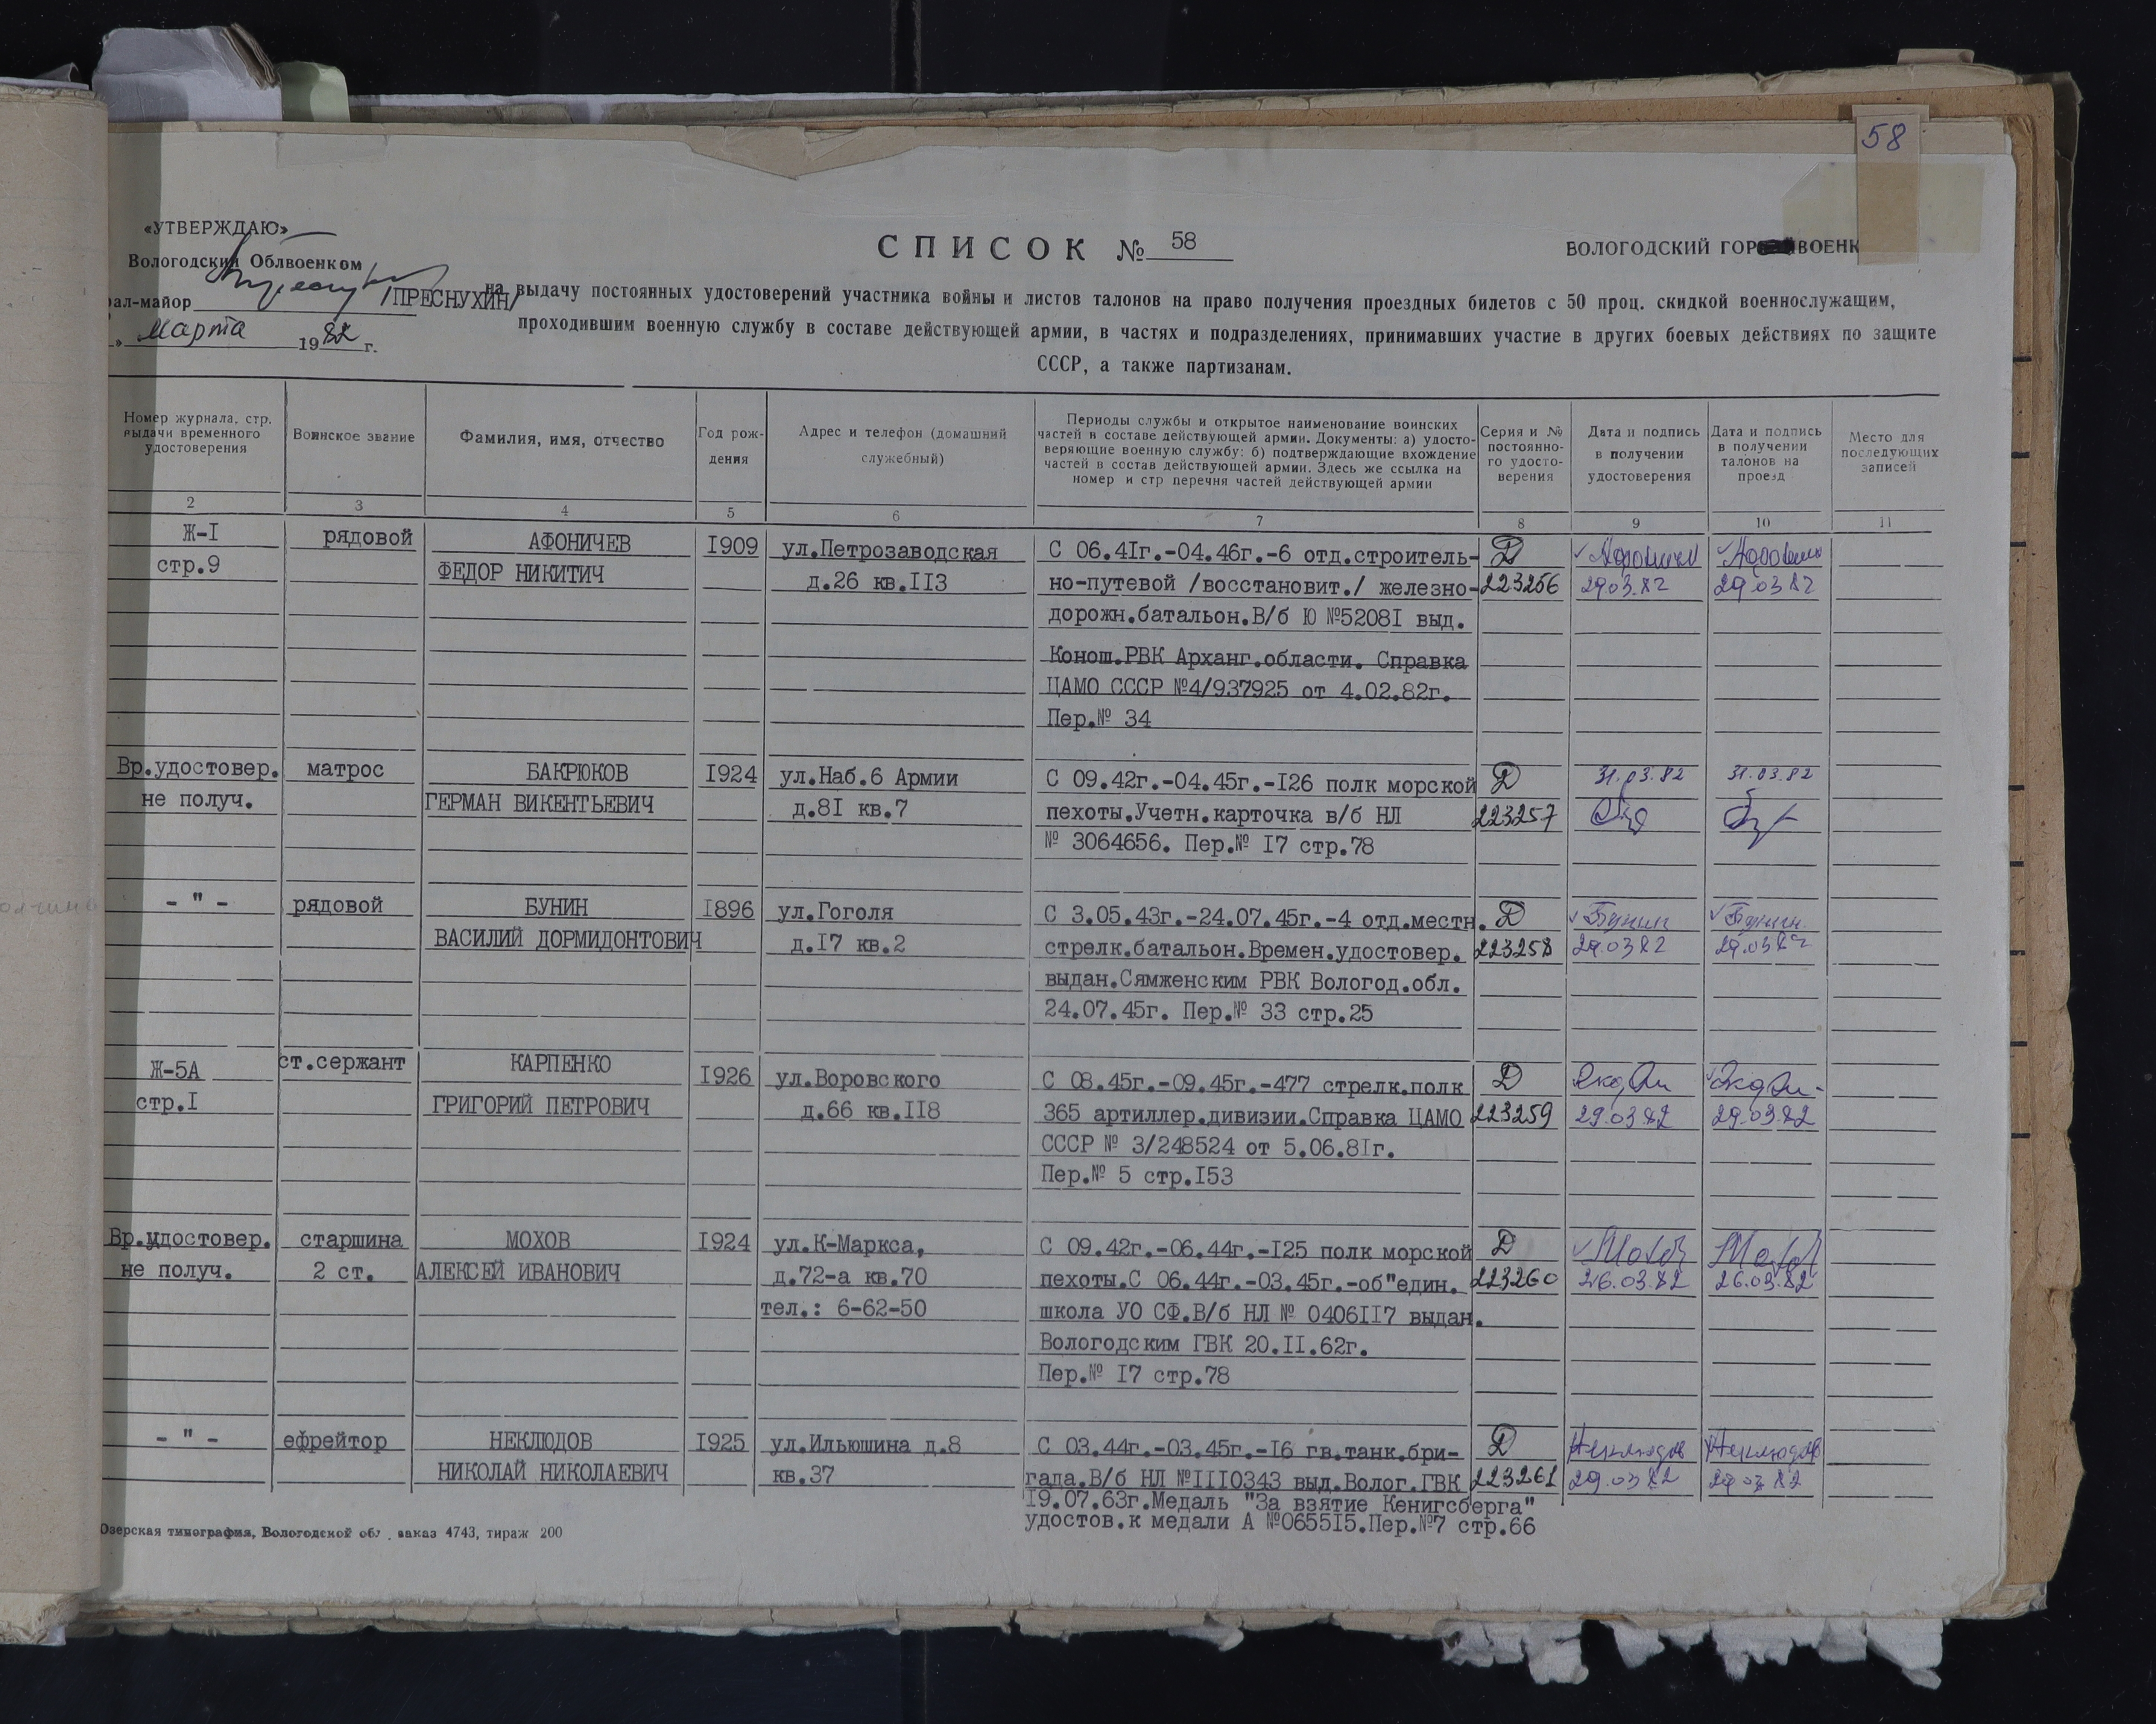 58
«УТВЕРЖДАЮ»
Вологодский Облвоенком
ал-майор /ПРЕСНУХИН/
» марта 1982 г.
СПИСОК № 58
ВОЛОГОДСКИЙ ГОР ВОЕНК
на выдачу постоянных удостоверений участника войны и листов талонов на право получения проездных билетов с 50 проц. скидкой военнослужащим,
проходившим военную службу в составе действующей армии, в частях и подразделениях, принимавших участие в других боевых действиях по защите
СССР, а также партизанам.
Номер журнала, стр. выдачи временного удостоверения
Воинское звание
Фамилия, имя, отчество
Год рож-
дения
Адрес и телефон (домашний
служебный)
Периоды службы и открытое наименование воинских
частей в составе действующей армии. Документы: а) удосто-
веряющие военную службу: б) подтверждающие вхождение
частей в состав действующей армии. Здесь же ссылка на
номер и стр перечня частей действующей армии
Серия и №
постоянно-
го удосто-
верения
Дата и подпись
в получении
удостоверения
Дата и подпись
в получении
талонов на
проезд
Место для
последующих
записей
2 3 4 5 6 7 8 9 10 11
Ж-I рядовой АФОНИЧЕВ I909 ул.Петрозаводская С 06.4Iг.-04.46г.-6 отд.строитель- Д
стр.9 ФЕДОР НИКИТИЧ д.26 кв.II3 но-путевой /восстановит./ железно- 223256 29.03.82 29.03.82
дорожн.батальон.В/б Ю №5208I выд.
Конош.РВК Арханг.области. Справка
ЦАМО СССР №4/937925 от 4.02.82г.
Пер.№ 34
Вр.удостовер. матрос БАКРЮКОВ I924 ул.Наб.6 Армии С 09.42г.-04.45г.-I26 полк морской Д 31.03.82 31.03.82
не получ. ГЕРМАН ВИКЕНТЬЕВИЧ д.8I кв.7 пехоты.Учетн.карточка в/б НЛ 223257
№ 3064656. Пер.№ I7 стр.78
- " - рядовой БУНИН I896 ул.Гоголя С 3.05.43г.-24.07.45г.-4 отд.местн. Д Бунин Бунин
ВАСИЛИЙ ДОРМИДОНТОВИЧ д.I7 кв.2 стрелк.батальон.Времен.удостовер. 223258 29.0382 29.0382
выдан.Сямженским РВК Вологод.обл.
24.07.45г. Пер.№ 33 стр.25
Ж-5А ст.сержант КАРПЕНКО I926 ул.Воровского С 08.45г.-09.45г.-477 стрелк.полк Д
стр.I ГРИГОРИЙ ПЕТРОВИЧ д.66 кв.II8 365 артиллер.дивизии.Справка ЦАМО 223259 29.03.82 29.03.82
СССР № 3/248524 от 5.06.8Iг.
Пер.№ 5 стр.I53
Вр.удостовер. старшина МОХОВ I924 ул.К-Маркса, С 09.42г.-06.44г.-I25 полк морской Д
не получ. 2 ст. АЛЕКСЕЙ ИВАНОВИЧ д.72-а кв.70 пехоты.С 06.44г.-03.45г.-об"един. 223260 26.03.82 26.03.82
тел.: 6-62-50 школа УО СФ.В/б НЛ № 0406II7 выдан.
Вологодским ГВК 20.II.62г.
Пер.№ I7 стр.78
- " - ефрейтор НЕКЛЮДОВ I925 ул.Ильюшина д.8 С 03.44г.-03.45г.-I6 гв.танк.бри- Д Неклюдов Неклюдов
НИКОЛАЙ НИКОЛАЕВИЧ кв.37 гада.В/б НЛ №III0343 выд.Волог.ГВК 223261 29.0382 29.0382
I9.07.63г.Медаль "За взятие Кенигсберга"
удостов.к медали А №0655I5.Пер.№7 стр.66
Озерская типография, Вологодской обл., заказ 4743, тираж 200